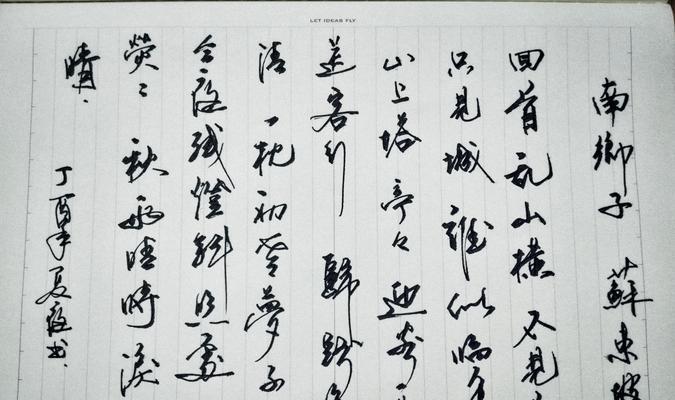 LET IDEAS FLY
南鄉子 蘇東坡
回首乱山橫 不見
只見城 誰似臨
山上塔 亭々 迎客
送客行 歸路
清 一枕初寒夢不
今夜殘燈斜照處
熒々 秋雨晴時淚
晴
丁酉年夏夜书